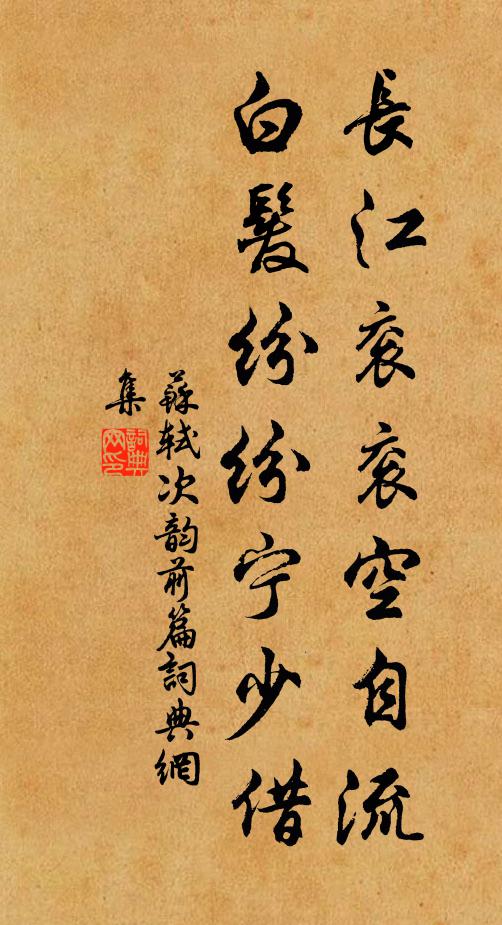 長江衮衮空自流
白髮紛紛宁少借
蘇軾次韵前篇詞典網
集
詞典
网印